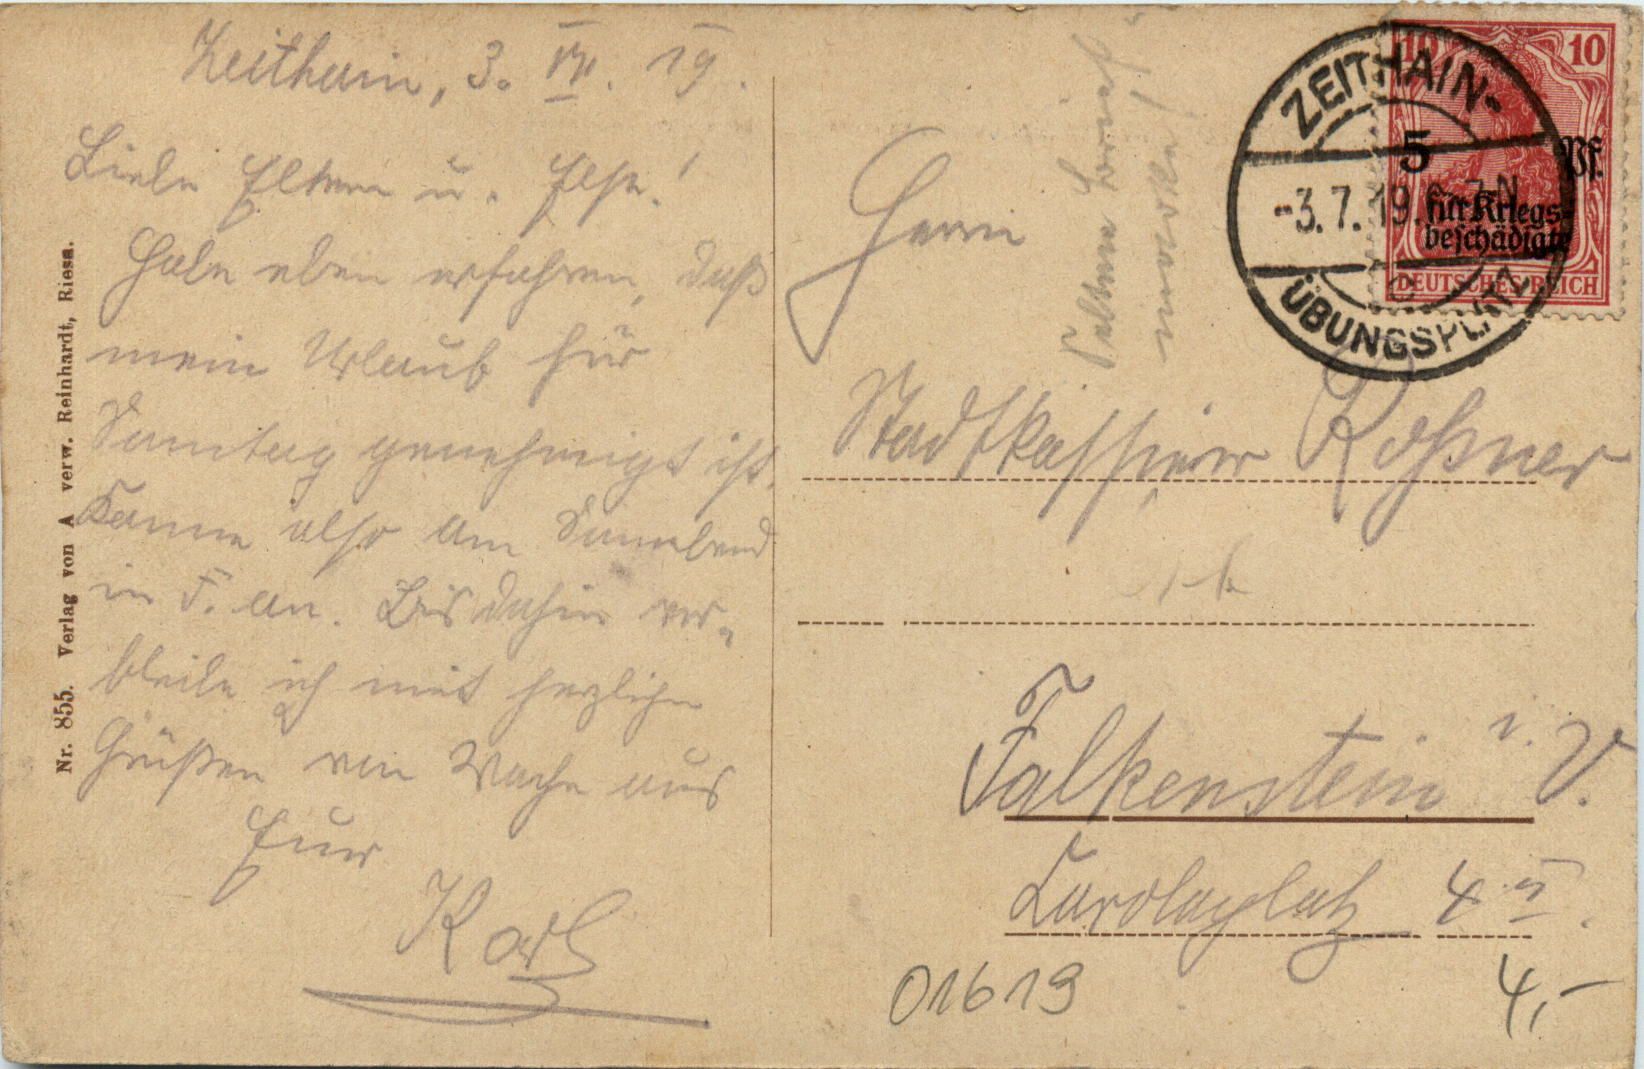 Zeithain, 3. VII. 19.
Liebe Eltern u. Else!
Habe eben erfahren, daß
mein Urlaub für
Sonntag genehmigt ist.
Komme also am Sonnabend
in F. an. Bis dahin ver-
bleibe ich mit herzlichen
Grüßen von Wache aus
Euer
Karl
Nr. 855. Verlag von A verw. Reinhardt, Riesa.
Herrn
Stadtkassierer Roßner
Falkenstein i. V.
Carolaplatz 4 II.
01619
4,-
ZEITHAIN-
-3.7.19. 7N
ÜBUNGSPLATZ
10
10
5 Pf.
für Kriegs-
beschädigte
DEUTSCHES REICH